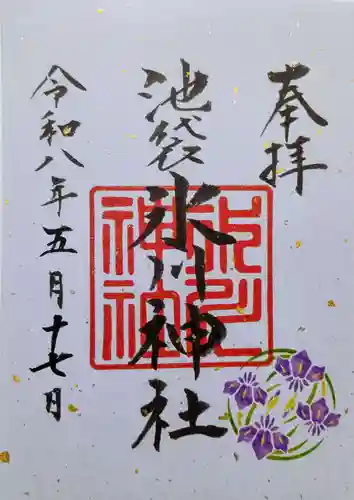 奉拝
池袋氷川神社
令和八年五月十七日
氷川神社